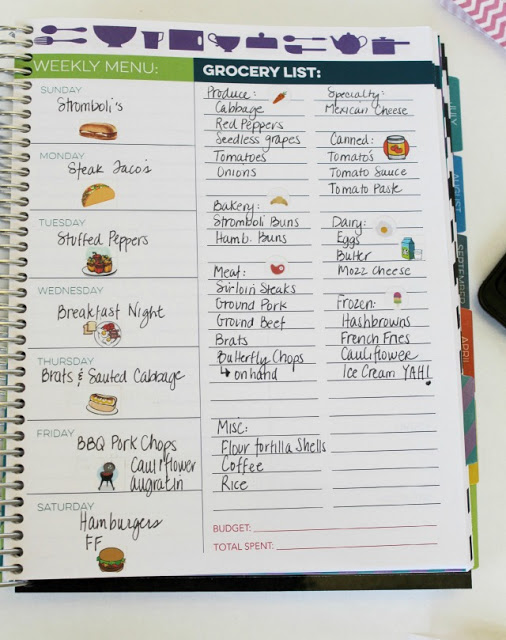 WEEKLY MENU:
SUNDAY
Stromboli's
MONDAY
Steak Taco's
TUESDAY
Stuffed Peppers
WEDNESDAY
Breakfast Night
THURSDAY
Brats & Sauted Cabbage
FRIDAY
BBQ Pork Chops
Cauliflower
augratin
SATURDAY
Hamburgers
FF
GROCERY LIST:
Produce:
Cabbage
Red Peppers
Seedless grapes
Tomatoes
Onions
Bakery:
Stromboli Buns
Hamb. Buns
Meat:
Sirloin Steaks
Ground Pork
Ground Beef
Brats
Butterfly Chops
↳ on hand
Misc:
Flour tortilla Shells
Coffee
Rice
Specialty:
Mexican Cheese
Canned:
Tomato's
Tomato Sauce
Tomato Paste
Dairy:
Eggs
Butter
Mozz Cheese
Frozen:
Hashbrowns
French Fries
Cauliflower
Ice Cream YAH!
BUDGET:
TOTAL SPENT:
JULY
AUGUST
SEPTEMBER
APRIL